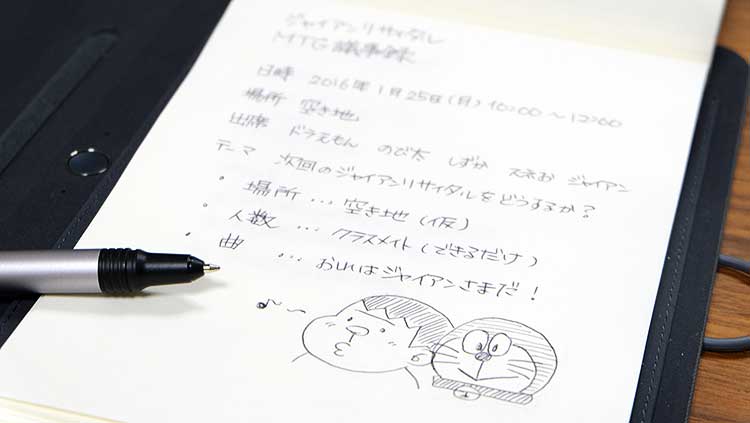 ジャイアンリサイタル
MTG 議事録
日時 2016年1月25日(月) 10:00～12:00
場所 空き地
出席 ドラえもん のび太 しずか スネお ジャイアン
テーマ 次回のジャイアンリサイタルをどうするか?
・場所 … 空き地(仮)
・人数 … クラスメイト(できるだけ)
・曲 … おれはジャイアンさまだ!